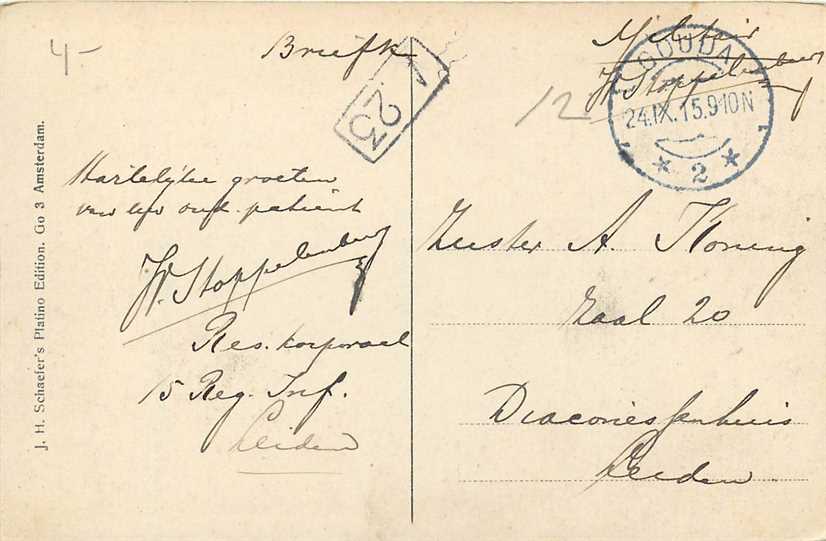 4-
Briefk
23
Militair
W. Stoppelenburg
GOUDA
24.IX.15.9-10N
2
12
Hartelijke groeten
van uw oud patient
W. Stoppelenburg
Res. korporaal
15 Reg. Inf.
Leiden
Zuster A. Koning
Zaal 20
Diaconessenhuis
Leiden
J. H. Schaefer's Platino Edition. Go 3 Amsterdam.